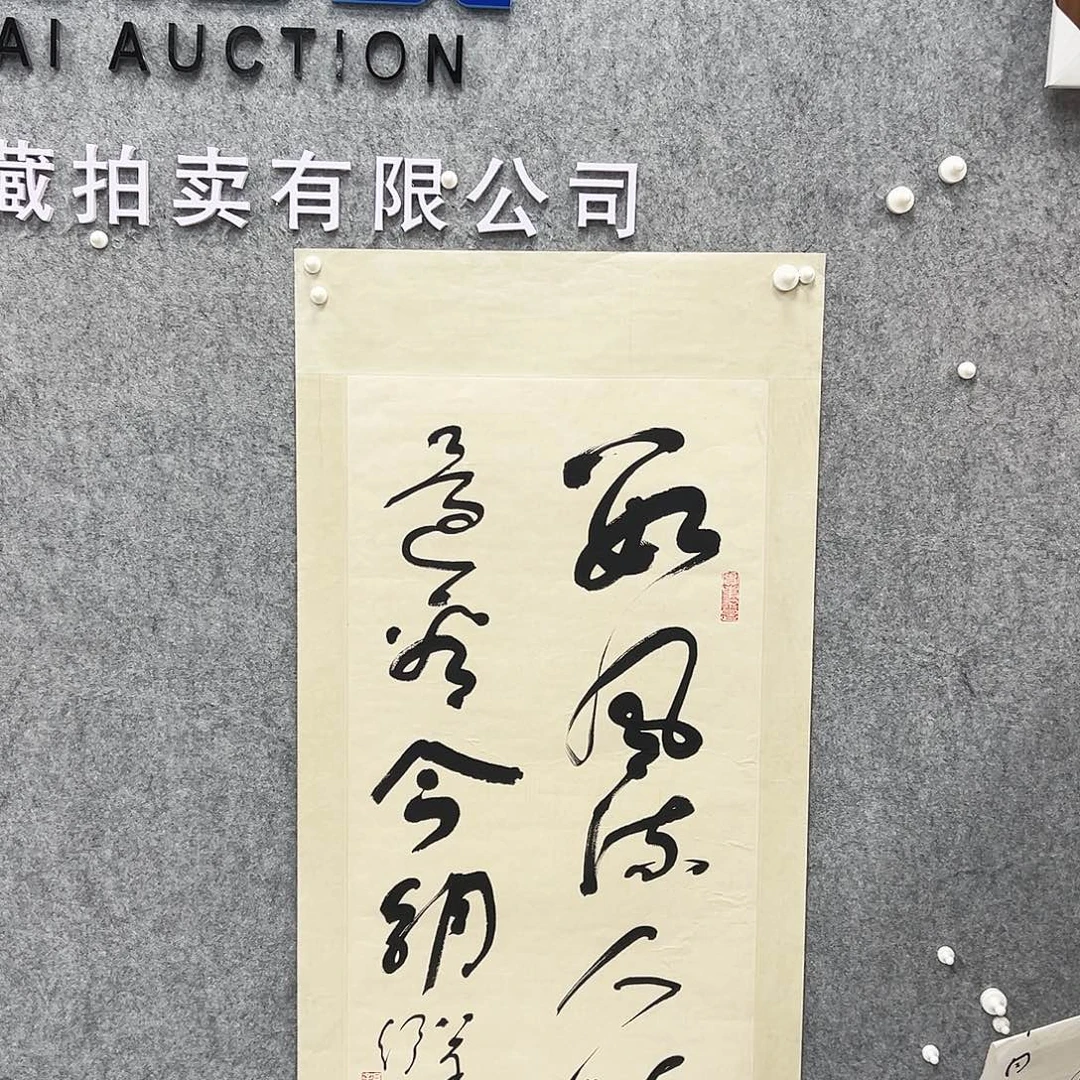 AI AUCTION
藏拍卖有限公司
数風流人
還看今朝